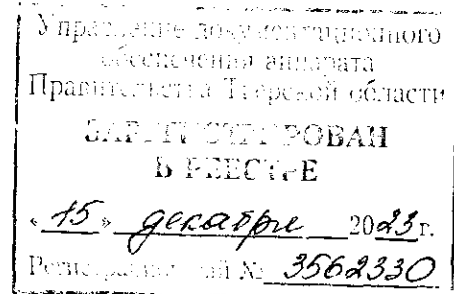 Управление документационного
обеспечения аппарата
Правительства Тверской области
ЗАРЕГИСТРИРОВАН
В РЕЕСТРЕ
« 15 » декабря 2023 г.
Регистрационный № 3562330